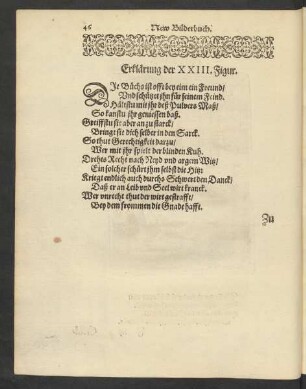 46 New Bilderbuch.
Erklärung der XXIII. Figur.
DIe Büchs ist offt bey eim ein Freund/
Und schützt ihn für seinem Feind.
Hältstu mit ihr deß Pulvers Maß/
So kanstu ihr geniessen baß.
Greiffstu sie aber an zu starck/
Bringt sie dich selber in den Sarck.
So thut Gerechtigkeit darzu/
Wer mit ihr spielt der blinden Kuh.
Drehts Recht nach Neyd und argem Witz/
Ein solcher schürt ihm selbst die Hitz:
Kriegt endlich auch durchs Schwert den Danck/
Daß er an Leib und Seel wirt kranck.
Wer unrecht thut der wirt gestrafft/
Bey dem frommen die Gnad hafft.
Zu